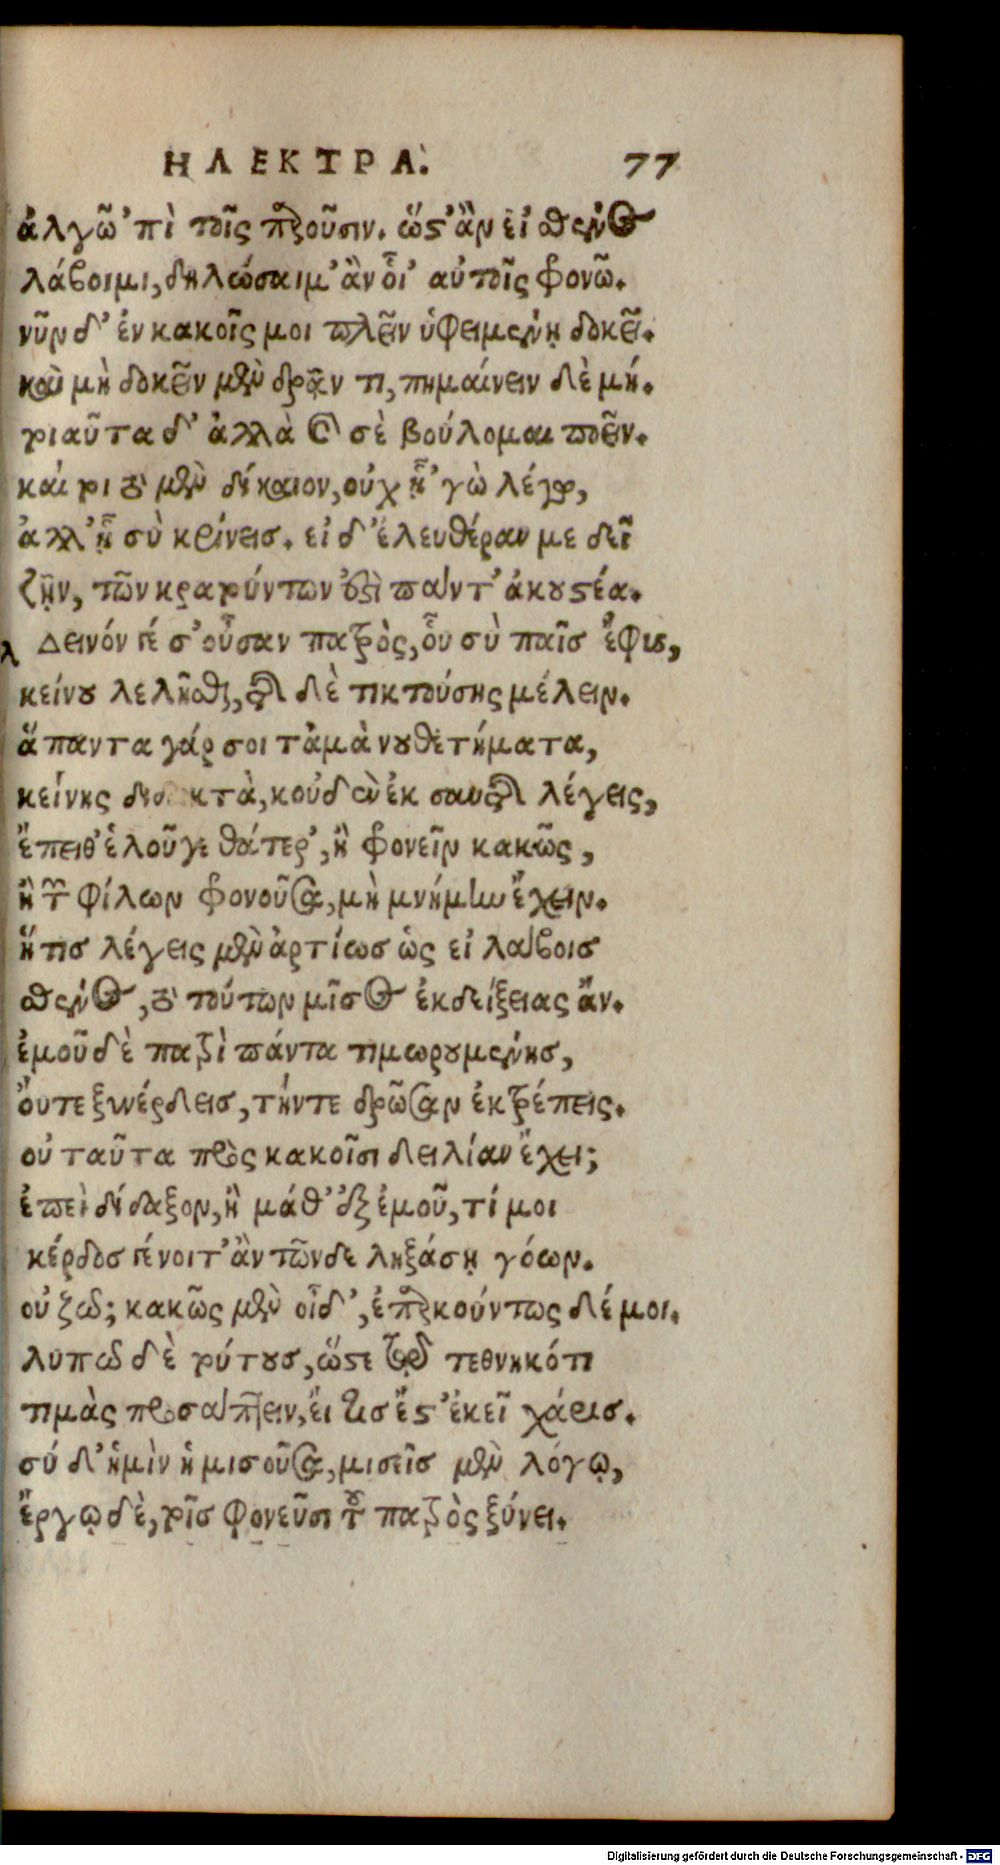 ΗΛΕΚΤΡΑ. 77
ἀλγῶ 'πὶ τοῖς παροῦσιν. ὥστ' ἂν εἰ σθένος
λάβοιμι, δηλώσαιμ' ἂν οἷ' αὐτοῖς φρονῶ.
νῦν δ' ἐν κακοῖς μοι πλεῖν ὑφειμένῃ δοκεῖ.
καὶ μὴ δοκεῖν μὲν δρᾷν τι, πημαίνειν δὲ μή.
τοιαῦτα δ' ἀλλὰ καὶ σὲ βούλομαι ποεῖν.
καί τοι τὸ μὲν δίκαιον, οὐχ ᾗ 'γὼ λέγω,
ἀλλ' ᾗ σὺ κρίνεις. εἰ δ' ἐλευθέραν με δεῖ
ζῇν, τῶν κρατούντων ἐστὶ πάντ' ἀκουστέα.
λ Δεινόν γέ σ' οὖσαν πατρὸς, οὗ σὺ παῖς ἔφυς,
κείνου λελῆσθαι, τῆς δὲ τικτούσης μέλειν.
ἅπαντα γάρ σοι τἀμὰ νουθετήματα,
κείνης διδακτὰ, κοὐδὲν ἐκ σαυτῆς λέγεις,
ἔπειθ' ἑλοῦ γε θάτερ', ἢ φρονεῖν κακῶς,
ἢ τῶν φίλων φρονοῦσα, μὴ μνήμην ἔχειν.
ἥτις λέγεις μὲν ἀρτίως ὡς εἰ λάβοις
σθένος, τὸ τούτων μῖσος ἐκδείξειας ἄν.
ἐμοῦ δὲ πατρὶ πάντα τιμωρουμένης,
οὔτε ξυνέρδεις, τήν τε δρῶσαν ἐκτρέπεις.
οὐ ταῦτα πρὸς κακοῖσι δειλίαν ἔχει;
ἐπεὶ δίδαξον, ἢ μάθ' ἐξ ἐμοῦ, τί μοι
κέρδος γένοιτ' ἂν τῶνδε ληξάσῃ γόων.
οὐ ζῶ; κακῶς μὲν οἶδ', ἐπαρκούντως δέ μοι.
λυπῶ δὲ τούτους, ὥστε τῷ τεθνηκότι
τιμὰς προσάπτειν, εἴ τις ἔστ' ἐκεῖ χάρις.
σύ δ' ἡμὶν ἡ μισοῦσα, μισεῖς μὲν λόγῳ,
ἔργῳ δὲ, τοῖς φονεῦσι τοῦ πατρὸς ξύνει.
Digitalisierung gefördert durch die Deutsche Forschungsgemeinschaft - DFG